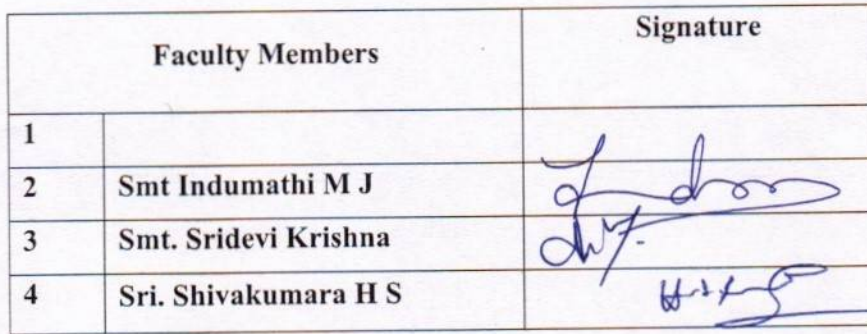 Faculty Members Signature
1
2 Smt Indumathi M J
3 Smt. Sridevi Krishna
4 Sri. Shivakumara H S